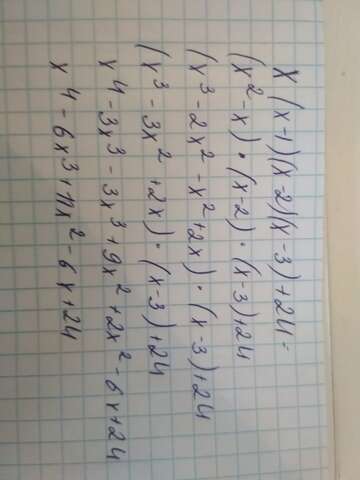 x(x-1)(x-2)(x-3)+24=
(x²-x)·(x-2)·(x-3)+24
(x³-2x²-x²+2x)·(x-3)+24
(x³-3x²+2x)·(x-3)+24
x⁴-3x³-3x³+9x²+2x²-6x+24
x⁴-6x³+11x²-6x+24